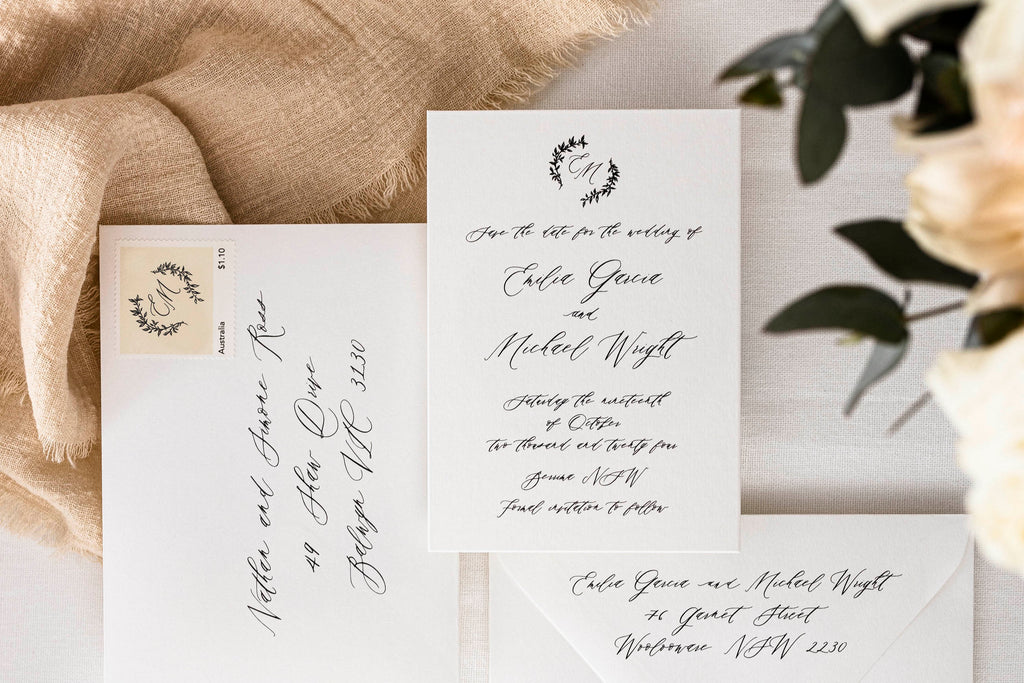 EM
$1.10
Australia
Nathan and Simone Ross
49 Shaw Drive
Balwyn VIC 3130
EM
Save the date for the wedding of
Emilia Garcia
and
Michael Wright
Saturday the nineteenth
of October
two thousand and twenty four
Berrima NSW
Formal invitation to follow
Emilia Garcia and Michael Wright
76 Garnet Street
Woolooware NSW 2230